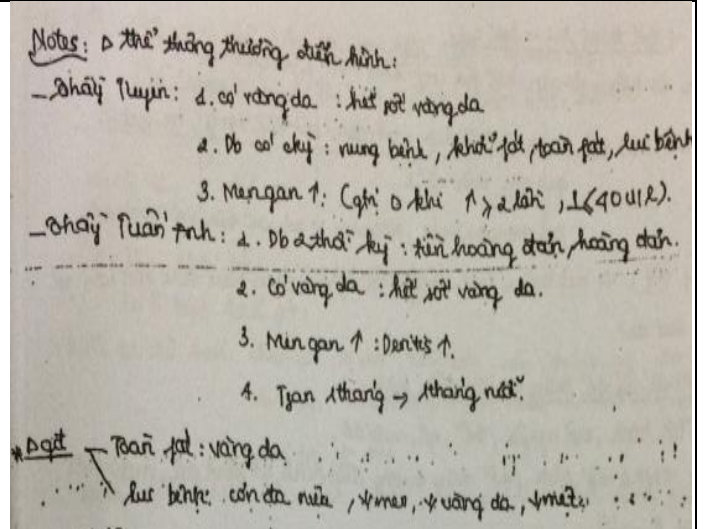 Notes: Δ thể thông thường điển hình:
- Thầy Tuyến: 1. có vàng da : hết sốt vàng da
2. Db có ckỳ : nung bệnh, khởi fát, toàn fát, lui bệnh
3. Men gan ↑: (ghi Δ khi ↑ ≥ 2 lần, 1 (40 U/l).
- Thầy Tuấn Anh: 1. Db 2 thời kỳ : tiền hoàng đản, hoàng đản.
2. Có vàng da : hết sốt vàng da.
3. Men gan ↑ :
4. Tgan 1 tháng → 1 tháng
* Δgđ - Toàn fát : vàng da
lui bệnh: ↓ men, ↓ vàng da, ↓ mệt